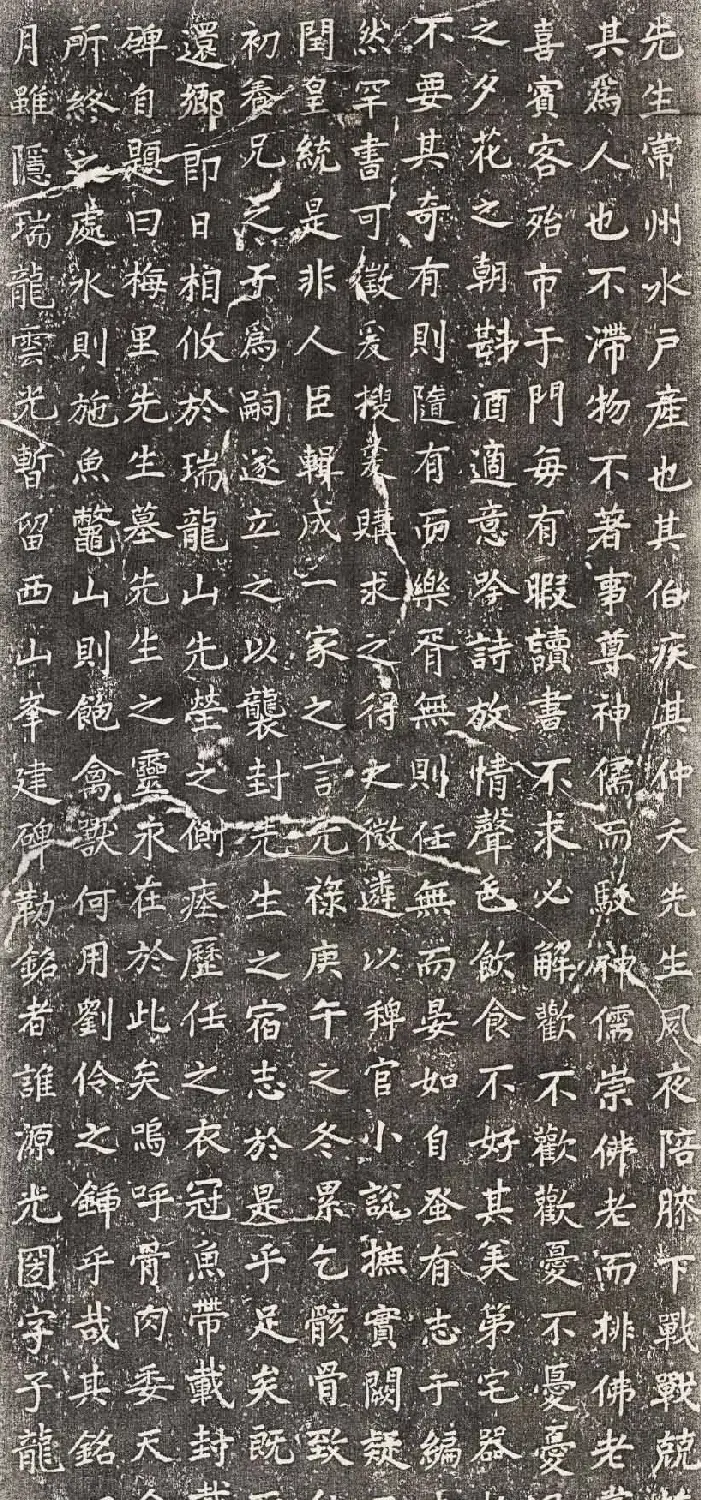 先生常州水戸產也其伯疾其仲夭先生夙夜陪膝下戰戰兢
其爲人也不滯物不著事尊神儒而駁神儒崇佛老而排佛老
喜賓客殆市于門每有暇讀書不求必解歡不歡歡憂不憂憂
之夕花之朝斟酒適意吟詩放情聲色飲食不好其美第宅器
不要其奇有則隨有而樂胥無則任無而晏如自蚤有志于編
然罕書可徵爰搜爰購求之得之微遴以稗官小說摭實闕疑
閏皇統是非人臣輯成一家之言元祿庚午之冬累乞骸骨致
初養兄之子爲嗣遂立之以襲封先生之宿志於是乎足矣既
還鄉即日相攸於瑞龍山先塋之側瘞歷任之衣冠魚帶載封
碑自題曰梅里先生墓先生之靈永在於此矣嗚呼骨肉委天
所終之處水則施魚鼈山則飽禽獸何用劉伶之鍤乎哉其銘
月雖隱瑞龍雲光暫留西山峯建碑勒銘者誰源光圀字子龍